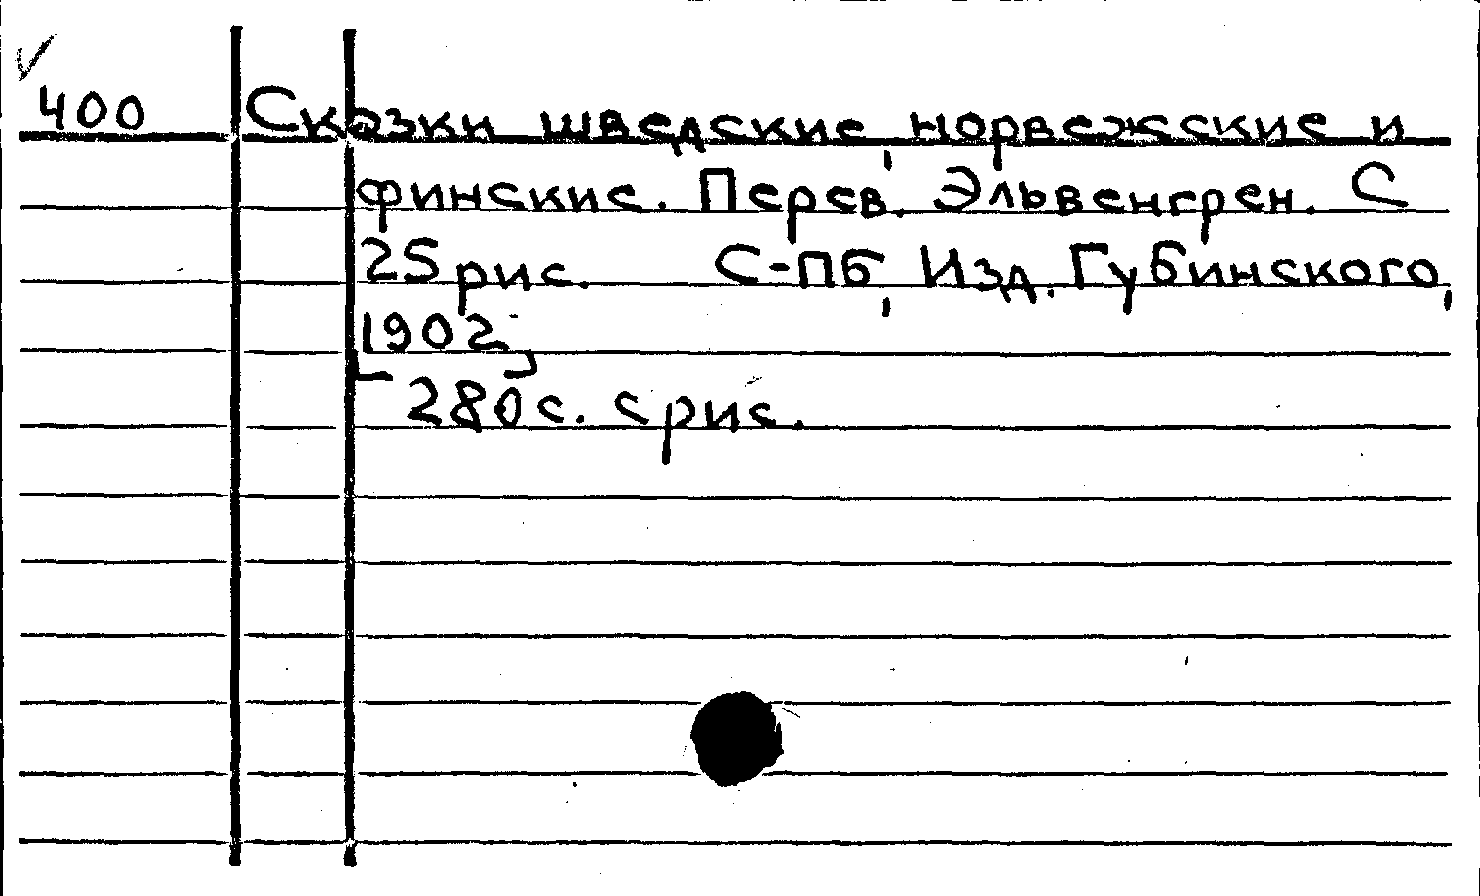 400 Сказки шведские, норвежские и
финские. Перев. Эльвенгрен. С
25 рис. С-Пб, Изд. Губинского,
[1902]
280 с. с рис.